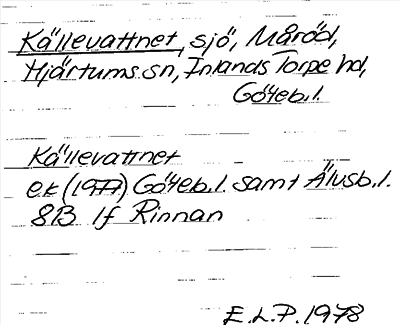 Källevattnet, sjö, Måröd,
Hjärtums sn, Inlands Torpe hd,
Göteb.l.
Källevattnet
e.k (1977) Göteb.l. samt Älvsb.l.
8B 1f Rinnan
E.L.P. 1978